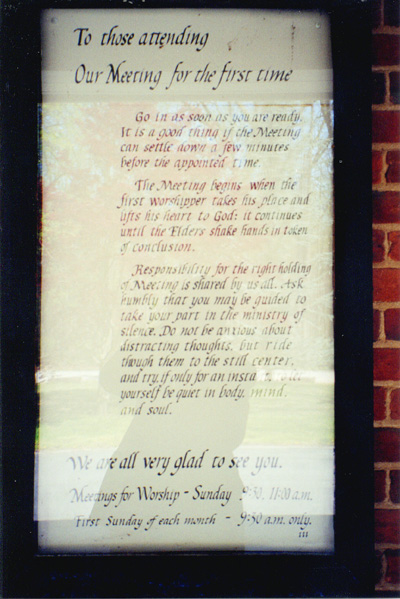 To those attending
Our Meeting for the first time
Go in as soon as you are ready.
It is a good thing if the Meeting
can settle down a few minutes
before the appointed time.
The Meeting begins when the
first worshipper takes his place and
lifts his heart to God: it continues
until the Elders shake hands in token
of conclusion.
Responsibility for the right holding
of Meeting is shared by us all. Ask
humbly that you may be guided to
take your part in the ministry of
silence. Do not be anxious about
distracting thoughts, but ride
though them to the still center,
and try, if only for an insta
yourself be quiet in body, mind,
and soul.
We are all very glad to see you.
Meetings for Worship - Sunday 9:50, 11:00 a.m.
First Sunday of each month - 9:50 a.m. only.